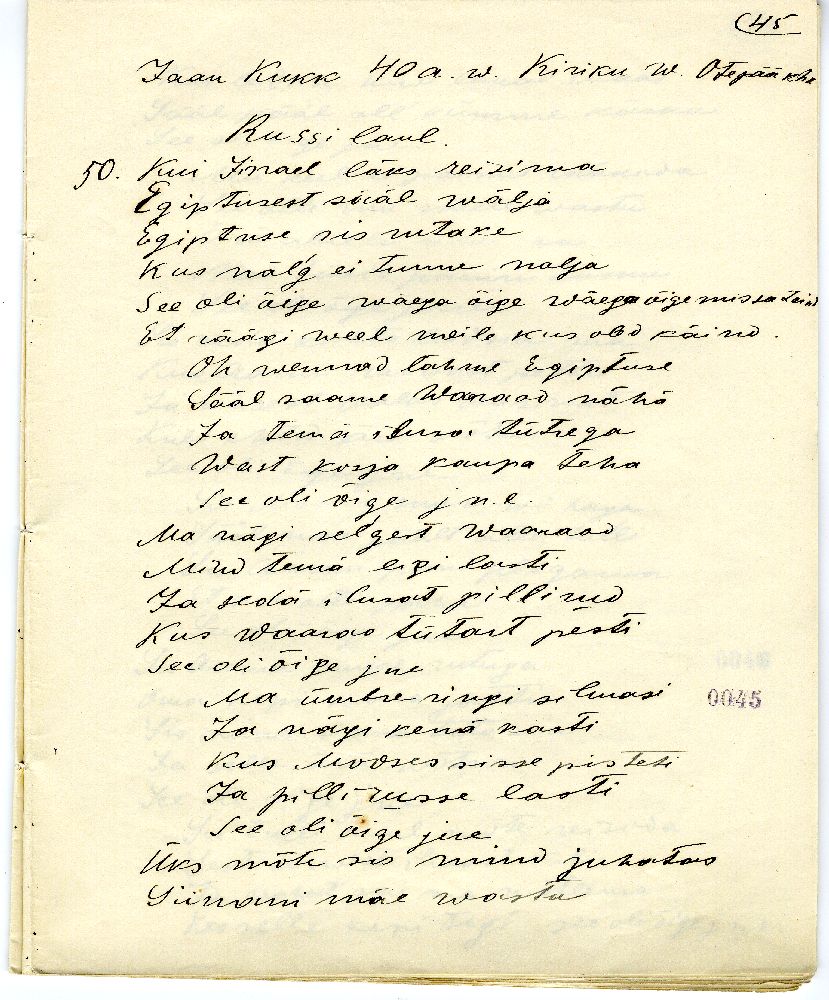 45
Jaan Kukk 40 a. w. Kiriku w. Otepää kh.
Russi laul.
50. Kui Iisrael läks reisima
Egiptusest sääl wälja
Egiptuse sis rutake
Kus nälg ei tunne nalja
See oli õige waega õige wäega õige mis sa teind
Et räägi weel meile kus olid käind.
Oh wennad lahme Egiptuse
Sääl saame Waaraod nähä
Ja temä ilusa tütrega
Wast kosja kaupa teha
See oli õige j n. e.
Ma nägi selgest Waaraod
Mind temä ligi lasti
Ja sedä ilusat pillirud
Kus waarao tütart pesti
See oli õige jne
Ma ümbre ringi silmasi
Ja nägi kenä kasti
Kus Mooses sisse pisteti
Ja pilli russe lasti
See oli õige jne
Üks mõte sis mind juhatas
Siinani mäe wasta
0045